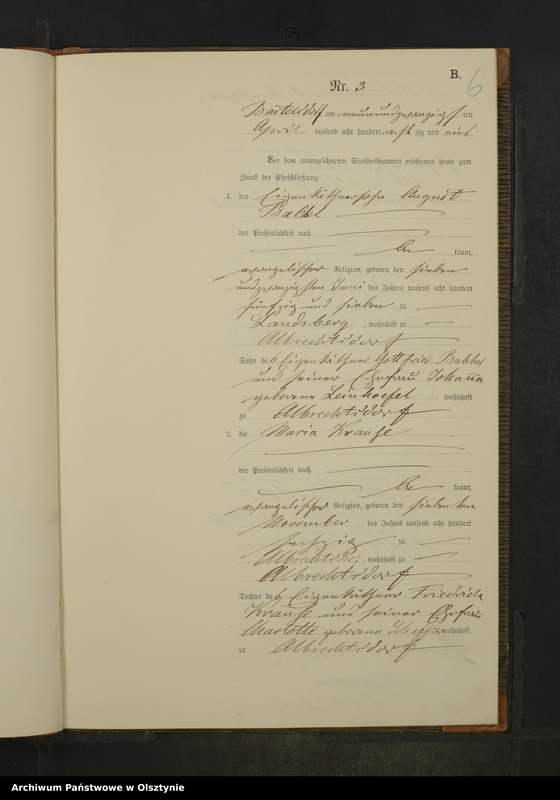 B.
6
Nr. 3
Bartelsdorf am neunundzwanzigsten
April tausend acht hundert achtzig und eins
Vor dem unterzeichneten Standesbeamten erschienen heute zum
Zweck der Eheschließung:
1. der Eigenkäthnersohn August
Babbel
der Persönlichkeit nach
be kannt,
evangelischer Religion, geboren den sieben
undzwanzigsten Juni des Jahres tausend acht hundert
fünfzig und sieben zu
Landsberg, wohnhaft zu
Albrechtsdorf
Sohn des Eigenkäthner Gottfried Babbel
und seiner Ehefrau Johanna
geborene wohnhaft
zu Albrechtsdorf
2. die Maria Krause
der Persönlichkeit nach
be kannt,
evangelischer Religion, geboren den siebenten
November des Jahres tausend acht hundert
sechzig zu
Albrechtsdorf, wohnhaft zu
Albrechtsdorf
Tochter des Eigenkäthner Friedrich
Krause und seiner Ehefrau
Charlotte geborene wohnhaft
zu Albrechtsdorf
Archiwum Państwowe w Olsztynie